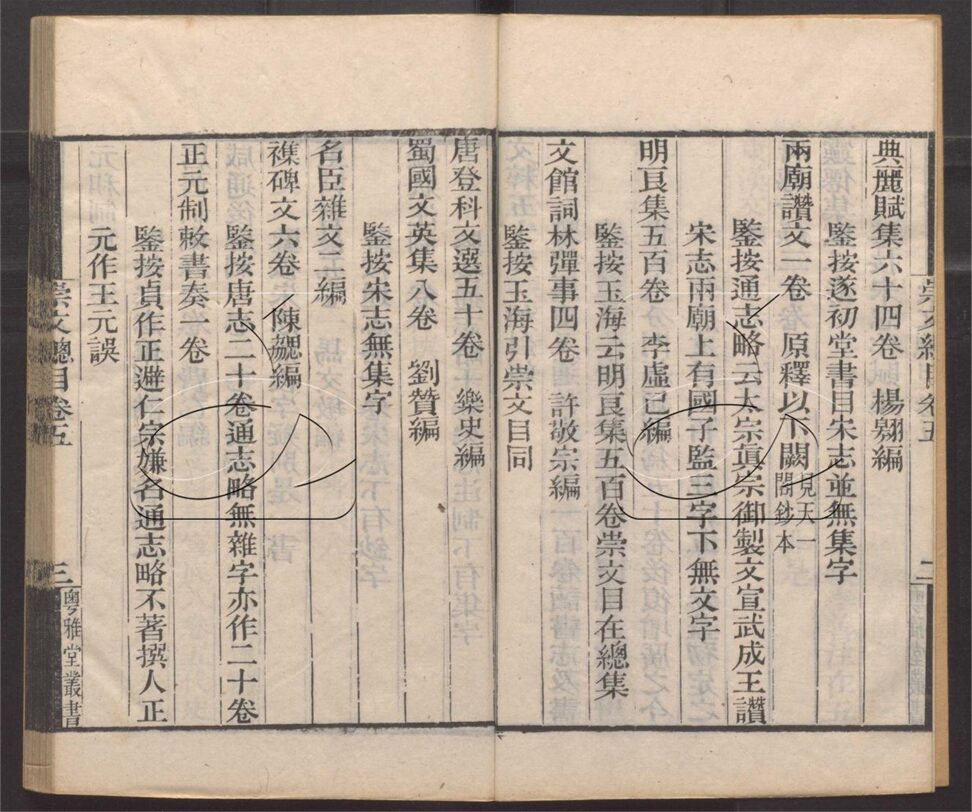 典麗賦集六十四卷　楊翱編
鑒按遂初堂書目宋志並無集字
兩廟讚文一卷　原釋以下闕見天一閣鈔本
鑒按通志略云太宗眞宗御製文宣武成王讚
宋志兩廟上有國子監三字下無文字
明良集五百卷　李虛己編
鑒按玉海云明良集五百卷崇文目在總集
文館詞林彈事四卷　許敬宗編
鑒按玉海引崇文目同
唐登科文選五十卷　樂史編
蜀國文英集八卷　劉贊編
鑒按宋志無集字
名臣雜文二編
襍碑文六卷　陳勰編
鑒按唐志二十卷通志略無雜字亦作二十卷
正元制敕書奏一卷
鑒按貞作正避仁宗嫌名通志略不著撰人正
元作王元誤
崇文總目卷五　三　粵雅堂叢書